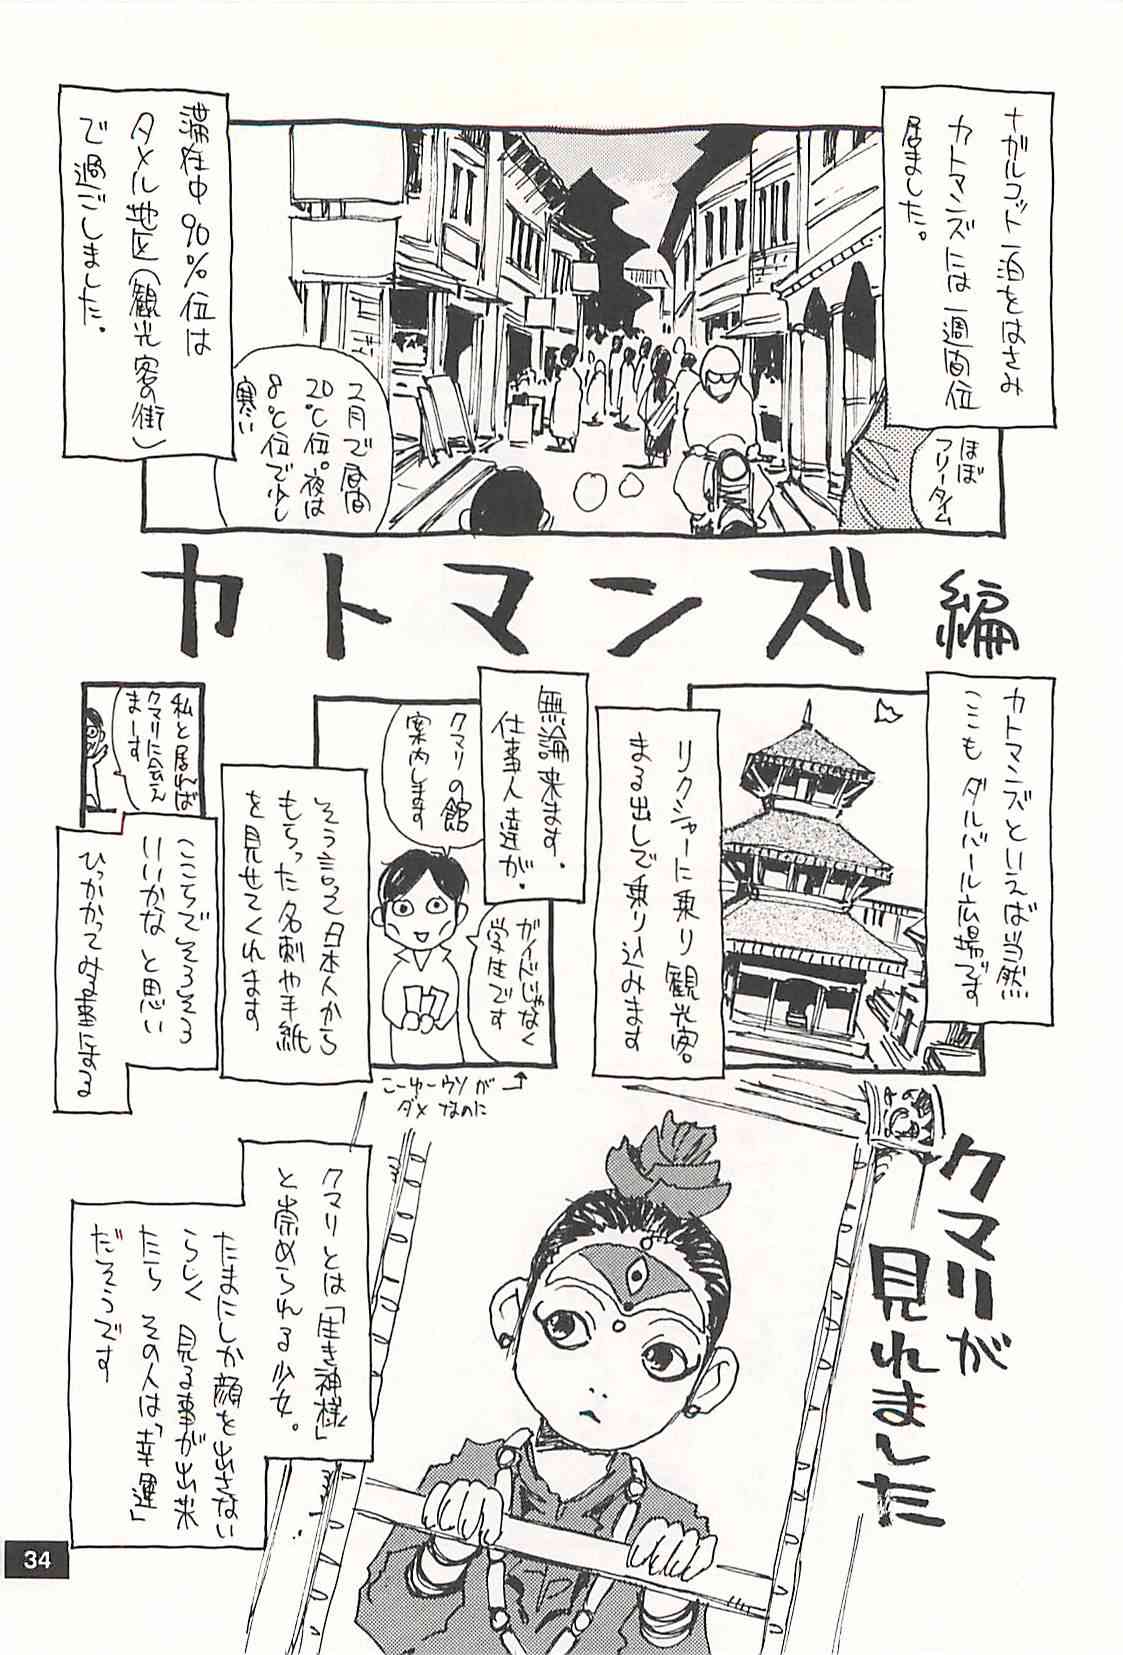 ナガルコット一泊をはさみ
カトマンズには一週間位
居ました。
ほぼ
フリータイム
滞在中90%位は
タメル地区(観光客の街)
で過ごしました。
2月で昼間
20℃位。夜は
8℃位で少し
寒い
カトマンズ編
カトマンズといえば当然
ここもダルバール広場です
リクシャーに乗り観光客。
まる出しで乗り込みます
無論来ます。
仕事人達が。
クマリの館
案内します
ガイドじゃなく
学生です
こーゆーウソが
ダメなのに
そう言って日本人から
もらった名刺や手紙
を見せてくれます
私と居れば
クマリに会え
まーす
ここらでそろそろ
いいかなと思い
ひっかかってみる事にする
クマリが
見れました
クマリとは「生き神様」
と崇められる少女。
たまにしか顔を出さない
らしく見る事が出来
たらその人は「幸運」
だそうです
34